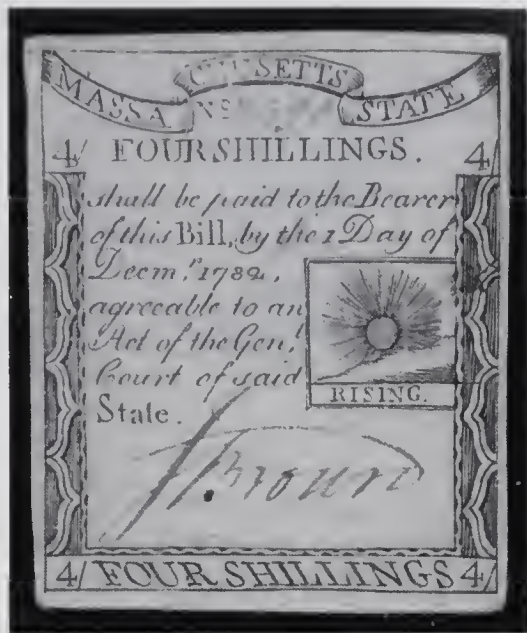 MASSA CHUSETTS STATE
No
4/ FOUR SHILLINGS. 4/
shall be paid to the Bearer
of this Bill, by the 1 Day of
Decm.r 1782,
agreeable to an
Act of the Genl.
Court of said
State.
RISING.
Brown
4/ FOUR SHILLINGS 4/